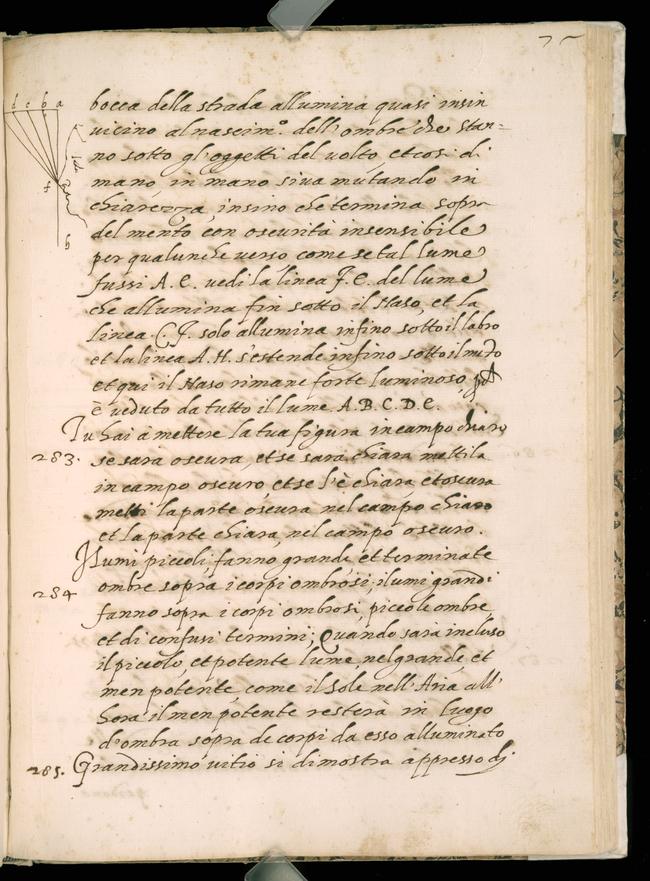 75
d c b a
bocca della strada allumina quasi insin
vicino al nascim.º dell'ombre che stan=
no sotto gl'oggetti del volto, et cosi di
mano in mano si va mutando in
chiarezza, insino che termina sopra
del mento con oscurità insensibile
per qualunche verso come se tal lume
fussi A. E. vedi la linea F. E. del lume
che allumina fin sotto il Naso, et la
linea. C. F. solo allumina infino sotto il labro
et la linea A. H. s'estende infino sotto il mẽto
et qui il Naso rimane forte luminoso,
è veduto da tutto il lume. A. B. C. D. E.
Tu hai à mettere la tua figura in campo chiaro
283. se sarà oscura, et se sarà chiara mettila
in campo oscuro et se l'è chiara, et oscura
metti la parte oscura nel campo chiaro
et la parte chiara, nel campo oscuro.
Ilumi piccoli, fanno, grande, et terminate
284 ombre sopra i corpi ombrosi, i lumi grandi
fanno sopra i corpi ombrosi, piccole ombre
et di confusi termini; Quando sarà incluso
il piccolo, et potente lume, nel grande, et
men potente, come il sole nell'Aria all'
hora il men potente resterà in luogo
d'ombra sopra de corpi da esso alluminato
285. Grandissimo vitio si dimostra appresso di
f
h